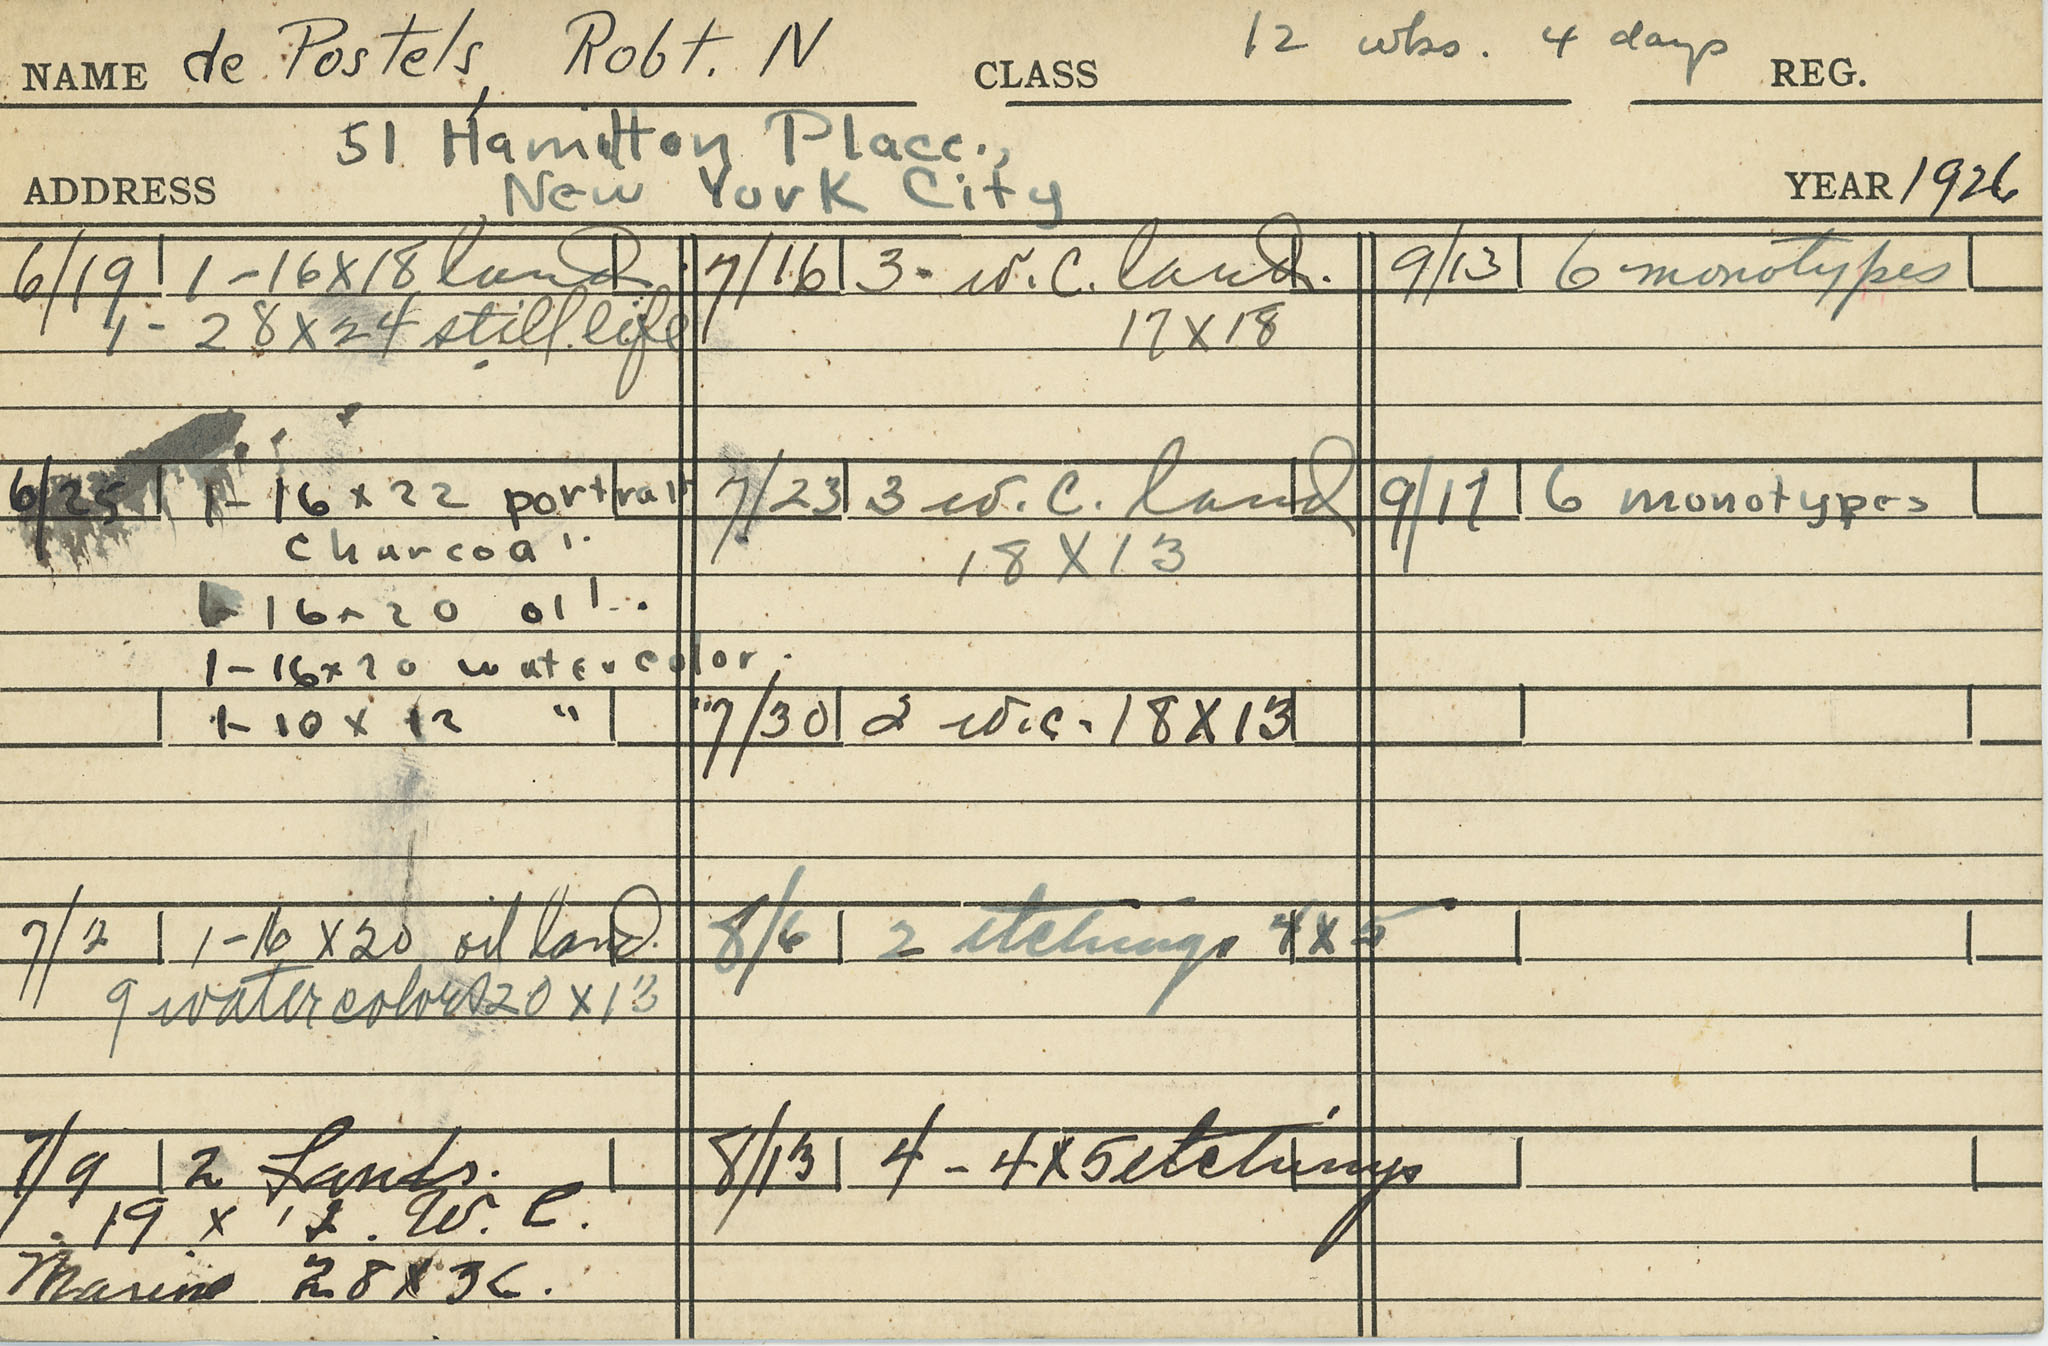 NAME de Postels, Robt. N CLASS 12 wks. 4 days REG.
51 Hamilton Place.,
ADDRESS New York City YEAR 1926
6/19 1-16X18 land.
1- 28X24 still life
6/25 1-16x22 portrait
charcoal.
1- 16x20 oil.
1-16x20 watercolor.
1-10x12 " "
7/2 1-16X20 oil land.
9 watercolors 20x13
7/9 2 Lands.
19 x 12. W.C.
Marine 28X36.
7/16 3- W.C. land.
17X18
7/23 3 W.C. land
18X13
7/30 2 W.C. 18X13
8/6 2 etchings 4x5
8/13 4-4X5 etchings
9/13 6 monotypes
9/17 6 monotypes